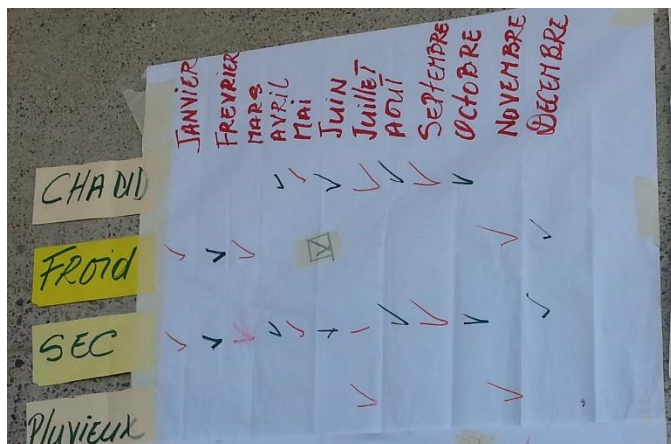 JANVIER
FREVRIER
MARS
AVRIL
MAI
JUIN
JUILLET
AOUT
SEPTEMBRE
OCTOBRE
NOVEMBRE
DECEMBRE
CHAUD
FROID
SEC
PLUVIEUX